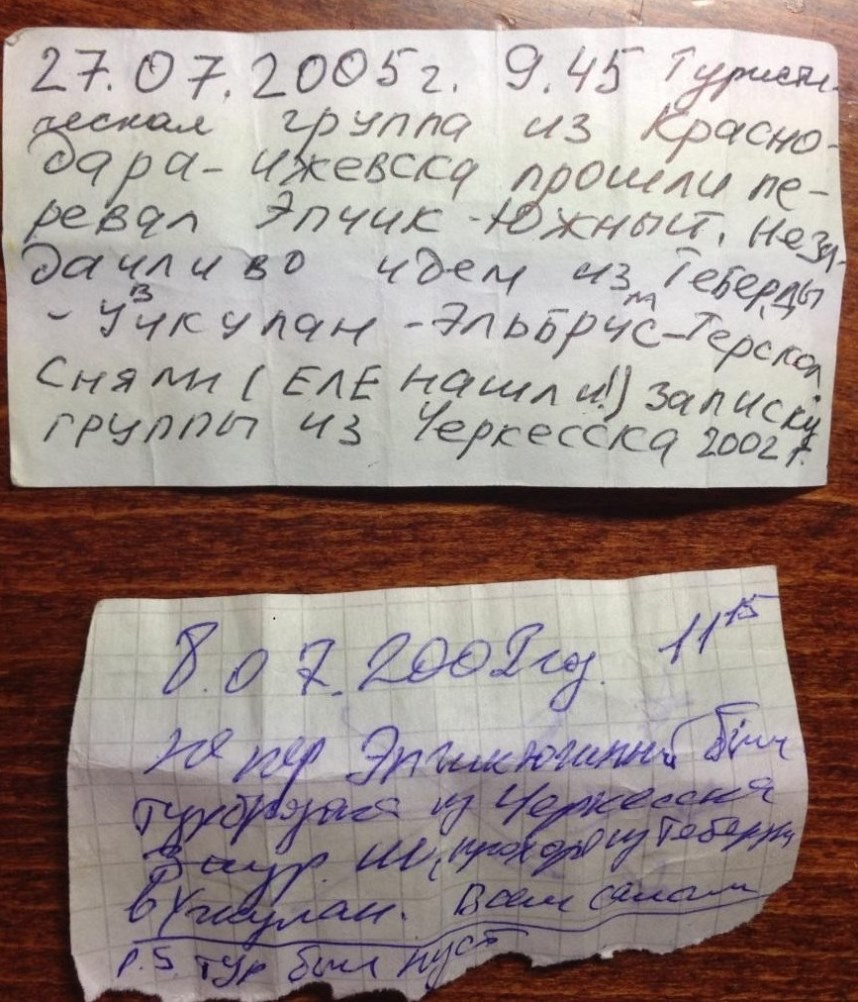 27.07.2005г. 9.45 Туристи-
ческая группа из Красно-
дара-Ижевска прошли пе-
ревал Эпчик-Южный. Неза-
дачливо идем из Теберды
- Учкулан - Эльбрус - Терскол
Сняли (ЕЛЕ нашли!) записку
группы из Черкесска 2002 г.
8.07.2002год. 11 15
На пер Эпчикюжный был
из Черкесска
из Теберды
в Учкулан. Всем салам
P.S тур был пуст